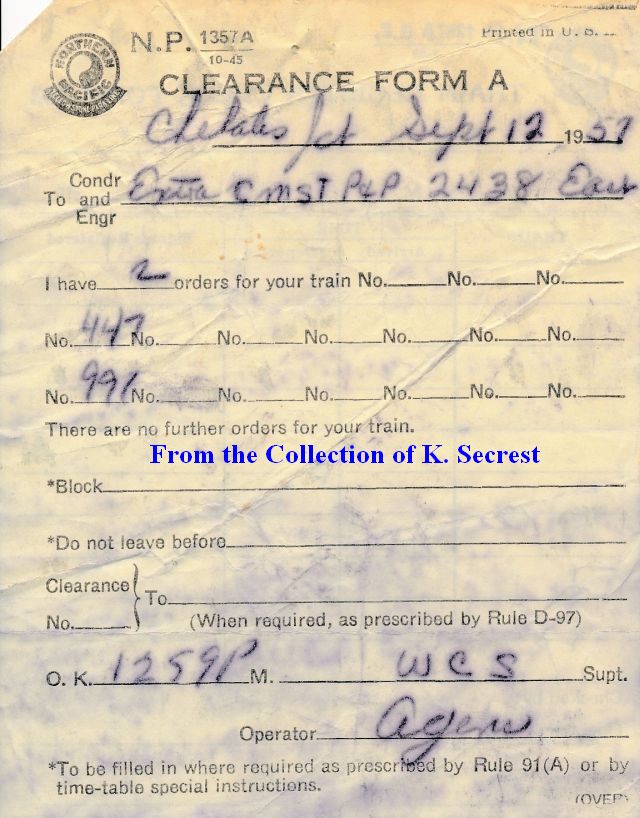 NORTHERN PACIFIC
N.P. 1357A
10-45
Printed in U. S.
CLEARANCE FORM A
Chehalis Jct Sept 12 1957
To Condr and Engr Extra CMSTP&P 2438 East
I have 2 orders for your train No. No. No.
No. 447 No. No. No. No. No. No.
No. 991 No. No. No. No. No. No.
There are no further orders for your train.
From the Collection of K. Secrest
*Block
*Do not leave before
Clearance No. } To
(When required, as prescribed by Rule D-97)
O. K. 1259P M. WCS Supt.
Operator
*To be filled in where required as prescribed by Rule 91(A) or by
time-table special instructions.
(OVER)